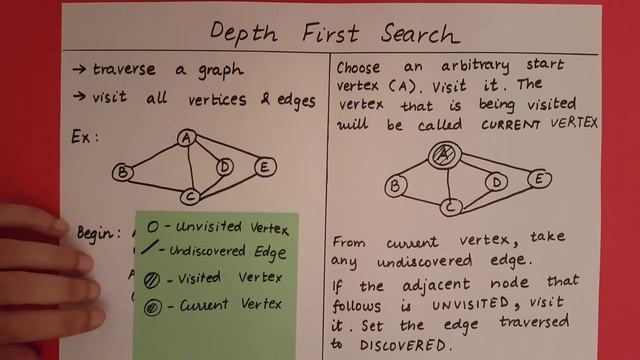 Depth First Search
→ traverse a graph
→ visit all vertices & edges
Ex:
A
B
D
E
C
Begin:
O - Unvisited Vertex
/ - Undiscovered Edge
- Visited Vertex
- Current Vertex
Choose an arbitrary start
vertex (A). Visit it. The
vertex that is being visited
will be called CURRENT VERTEX
A
B
D
E
C
From current vertex, take
any undiscovered edge.
If the adjacent node that
follows is UNVISITED, visit
it. Set the edge traversed
to DISCOVERED.